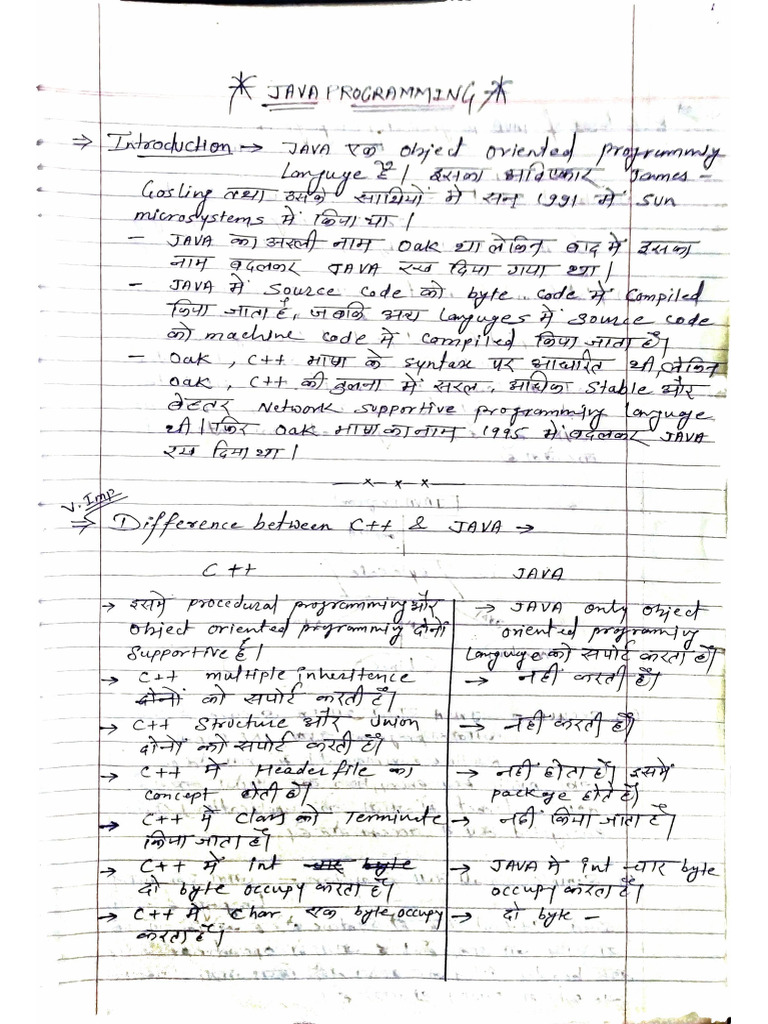 * JAVA PROGRAMMING *
⇒ Introduction → JAVA एक object oriented programming
Language है। इसका आविष्कार James -
Gosling तथा उसके साथियों ने सन् 1991 में Sun
microsystems में किया था।
- JAVA का असली नाम Oak था लेकिन बाद में इसका
नाम बदलकर JAVA रख दिया गया था।
- JAVA में Source code को byte code में Compiled
किया जाता है, जबकि अन्य languges में source code
को machine code में compiled किया जाता है।
- Oak, C++ भाषा के syntax पर आधारित थी, लेकिन
Oak, C++ की तुलना में सरल, अधिक Stable और
बेहतर Network supportive programming language
थी। फिर Oak भाषा का नाम 1995 में बदलकर JAVA
रख दिया था।
—x— x — x—
V. Imp
⇒ Difference between C++ & JAVA →
C++ JAVA
→ इसमे procedural programming और → JAVA only object
object oriented programming दोनों oriented programing
Supportive है। Languge को सपोर्ट करता है।
→ C++ multiple inheritence → नहीं करती है।
दोनों को सपोर्ट करती है।
→ C++ Structure और Union → नहीं करती है।
दोनों को सपोर्ट करती है।
→ C++ में Header file का → नहीं होता है। इसमें
concept होती है। package होते है।
→ C++ में Class को Terminate → नहीं किया जाता है।
किया जाता है।
→ C++ में int चार byte → JAVA मे int चार byte
दो byte occupy करता है। occupy करता है।
→ C++ में Char, एक byte occupy → दो byte -
करता है।